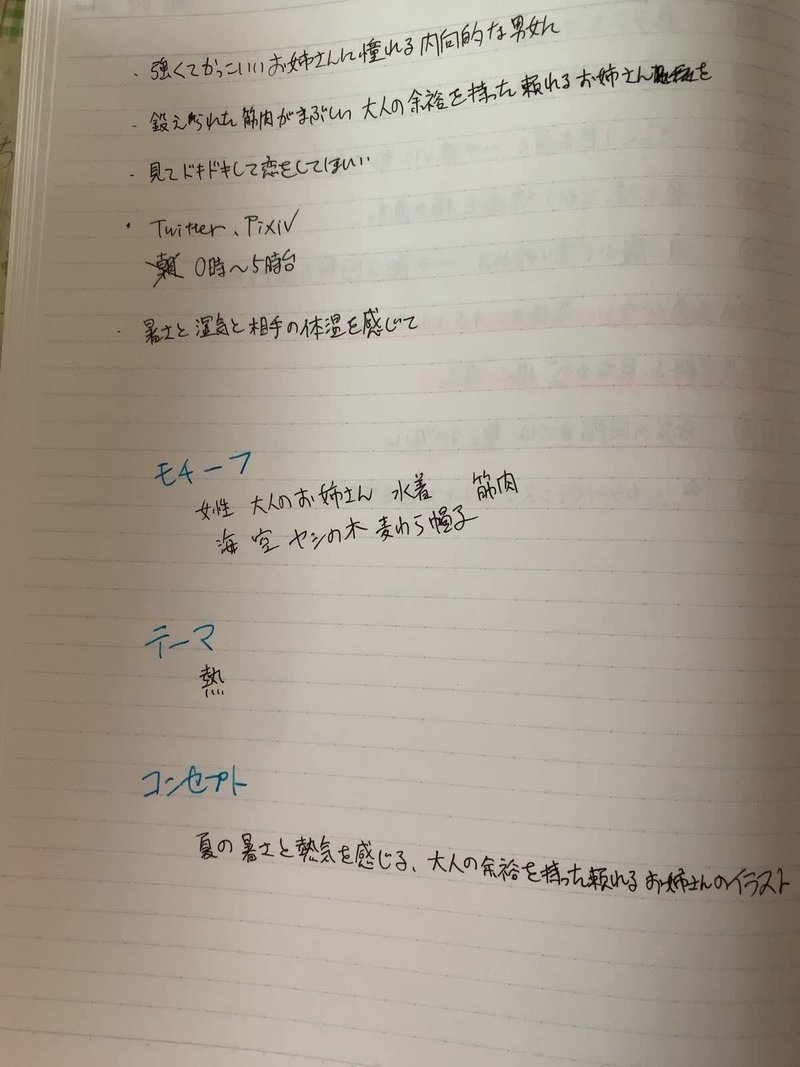 ・強くてかっこいいお姉さんに憧れる内向的な男女に
・鍛えられた筋肉がまぶしい大人の余裕を持った頼れるお姉さんを
・見てドキドキして恋をしてほしい
・Twitter、Pixiv
0時〜5時台
・暑さと湿気と相手の体温を感じて
モチーフ
女性 大人のお姉さん 水着 筋肉
海 空 ヤシの木 麦わら帽子
テーマ
熱
コンセプト
夏の暑さと熱気を感じる、大人の余裕を持った頼れるお姉さんのイラスト